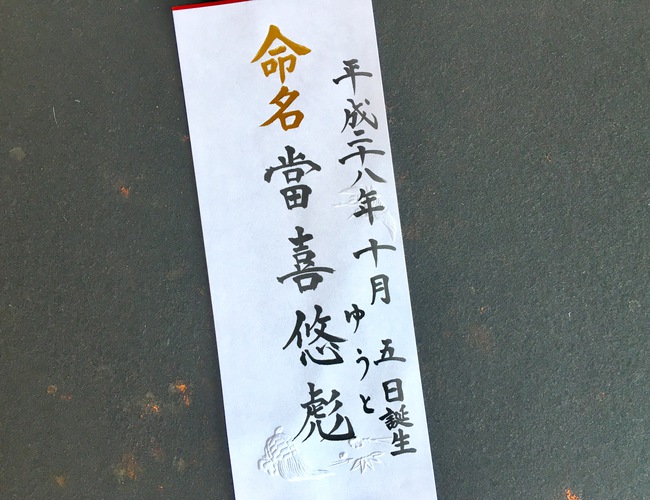 平成二十八年十月五日誕生
命名 當喜悠彪
ゆうと